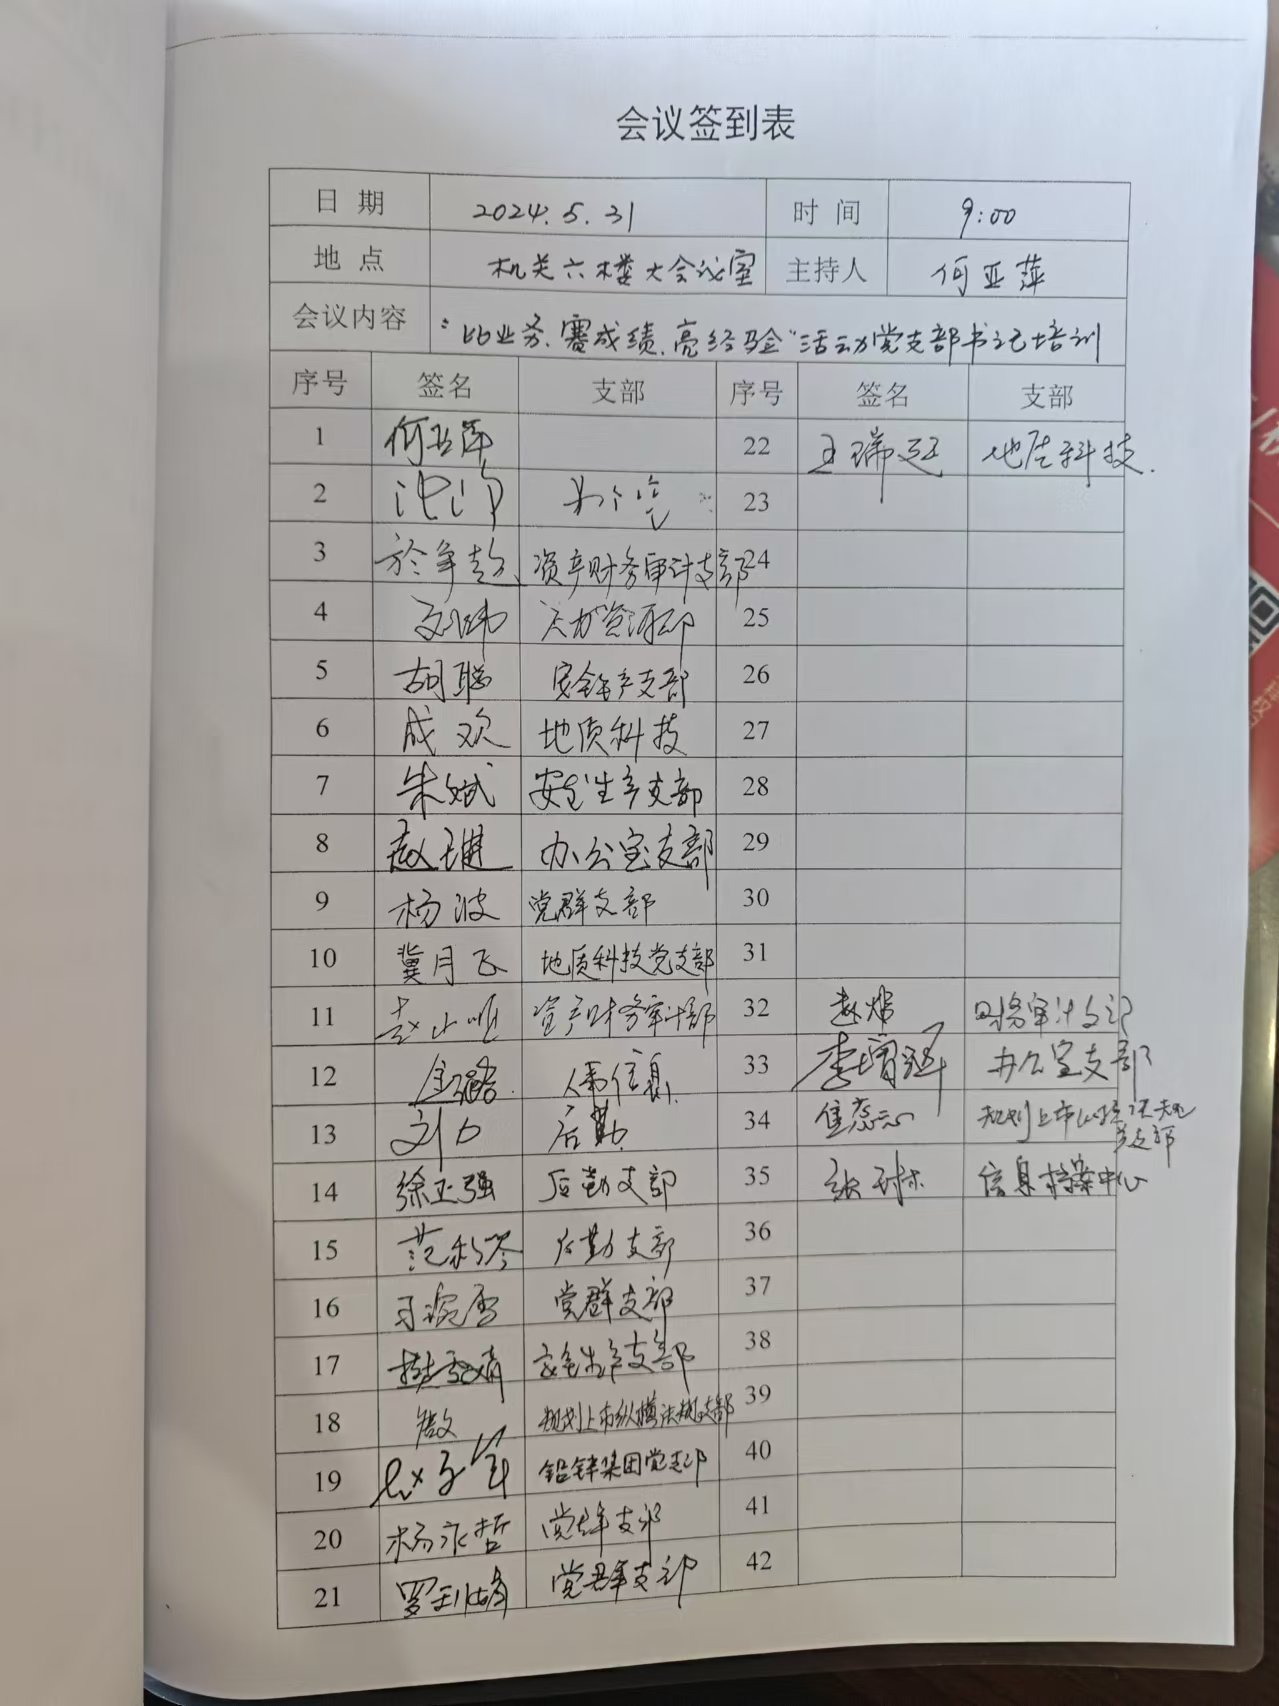 会议签到表
日期 2024.5.31 时间 9:00
地点 机关六楼大会议室 主持人 何亚萍
会议内容 "比业务、赛成绩、亮经验"活动党支部书记培训
序号 签名 支部 序号 签名 支部
1 何亚萍 22 王瑞廷 地质科技
2 23
3 资产财务审计支部 24
4 人力资源部 25
5 胡聪 安全生产支部 26
6 成欢 地质科技 27
7 朱斌 安全生产支部 28
8 赵琎 办公室支部 29
9 杨波 党群支部 30
10 冀月飞 地质科技党支部 31
11 资产财务审计部 32 财务审计支部
12 人事信息 33 李增 办公室支部
13 刘力 后勤 34 焦蕊
14 徐正强 后勤支部 35 张琳 信息档案中心
15 后勤支部 36
16 党群支部 37
17 安全生产支部 38
18 规划上市纵横法规支部 39
19 铅锌集团党支部 40
20 杨永哲 党群支部 41
21 罗 党群支部 42